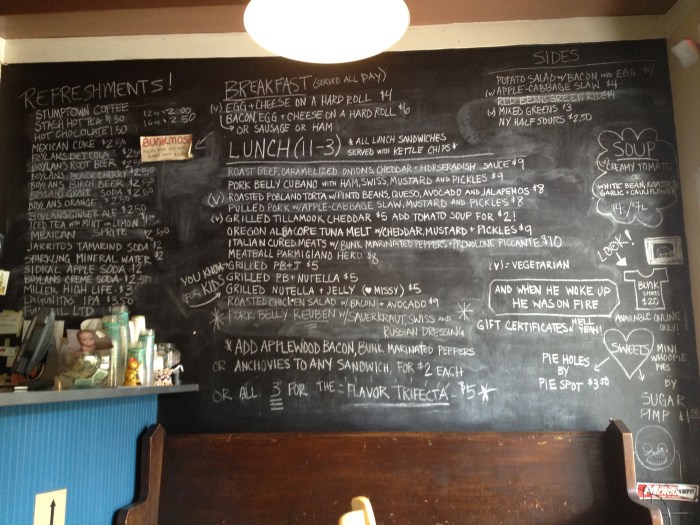 REFRESHMENTS!
STUMPTOWN COFFEE 12oz $2.00
16oz $2.50
STASH HOT TEA $1.50
HOT CHOCOLATE $1.50
MEXICAN COKE $2.50
BOYLANS DIET COLA $2
BOYLANS ROOT BEER $2
BOYLANS BLACK CHERRY $2.50
BOYLANS BIRCH BEER $2.50
BOYLANS GRAPE SODA $2.50
BOYLANS ORANGE $2.50
BOYLANS GINGER ALE $2.50
ICED TEA WITH MINT + LEMON
MEXICAN SPRITE
JARRITOS TAMARIND SODA $2
SPARKLING MINERAL WATER $2
SIDRAL APPLE SODA $2
BOYLANS CREME SODA $2.50
MILLER HIGH LIFE $3
LAGUNITAS IPA $3.50
LTD
BUNKMOST
BREAKFAST (SERVED ALL DAY)
(V) EGG + CHEESE ON A HARD ROLL $4
BACON, EGG + CHEESE ON A HARD ROLL $6
OR SAUSAGE OR HAM
LUNCH (11-3) * ALL LUNCH SANDWICHES
SERVED WITH KETTLE CHIPS *
ROAST BEEF, CARAMELIZED ONIONS, CHEDDAR + HORSERADISH SAUCE $9
PORK BELLY CUBANO WITH HAM, SWISS, MUSTARD AND PICKLES $9
(V) ROASTED POBLANO TORTA W/ PINTO BEANS, QUESO, AVOCADO AND JALAPENOS $8
PULLED PORK W/ APPLE-CABBAGE SLAW, MUSTARD AND PICKLES $8
(V) GRILLED TILLAMOOK CHEDDAR $5 ADD TOMATO SOUP FOR $2!
OREGON ALBACORE TUNA MELT W/ CHEDDAR, MUSTARD + PICKLES $9
ITALIAN CURED MEATS W/ BUNK MARINATED PEPPERS + PROVOLONE PICCANTE $10
MEATBALL PARMIGIANO HERO $8
YOU KNOW-
FOR KIDS
GRILLED PB + J $5
GRILLED PB + NUTELLA $5
GRILLED NUTELLA + JELLY (♥ MISSY) $5
ROASTED CHICKEN SALAD W/ BACON + AVOCADO $9
* PORK BELLY REUBEN W/ SAUERKRAUT, SWISS AND
RUSSIAN DRESSING
* ADD APPLEWOOD BACON, BUNK MARINATED PEPPERS
OR ANCHOVIES TO ANY SANDWICH FOR $2 EACH
OR ALL 3 FOR THE = FLAVOR TRIFECTA - $5 *
SIDES
POTATO SALAD W/ BACON AND EGG $4
(V) APPLE-CABBAGE SLAW $4
RED BEANS GREEN RICE $4
(V) MIXED GREENS $3
NY HALF SOURS $2.50
SOUP
(V) CREAMY TOMATO
OR
WHITE BEAN, ROASTED
GARLIC + CAULIFLOWER
(V) = VEGETARIAN
AND WHEN HE WOKE UP
HE WAS ON FIRE
GIFT CERTIFICATES HELL YEAH!
PIE HOLES
BY
PIE SPOT $3.50
LOOK!
BUNK
SHIRT
$20
AVAILABLE ONLINE
ONLY!
SWEETS
MINI
WHOOPIE
PIES
BY
SUGAR
PIMP